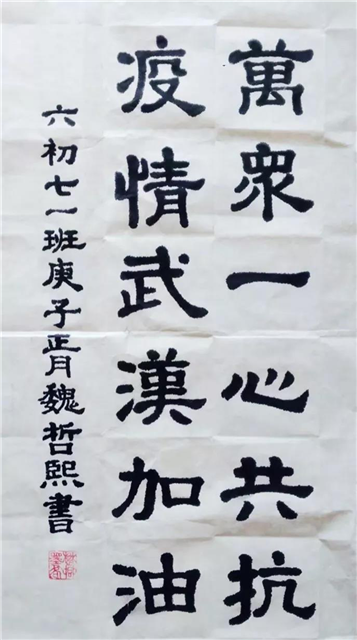 萬衆一心共抗
疫情武漢加油
六初七一班庚子正月魏哲熙書